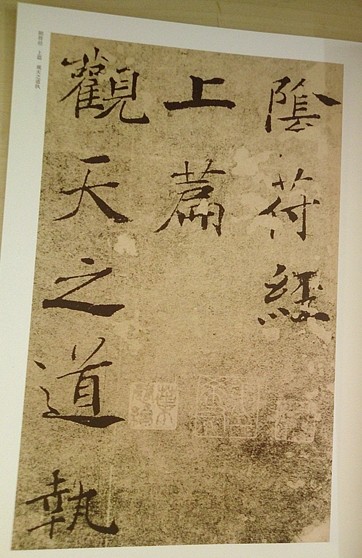 陰符经
上篇
觀天之道執